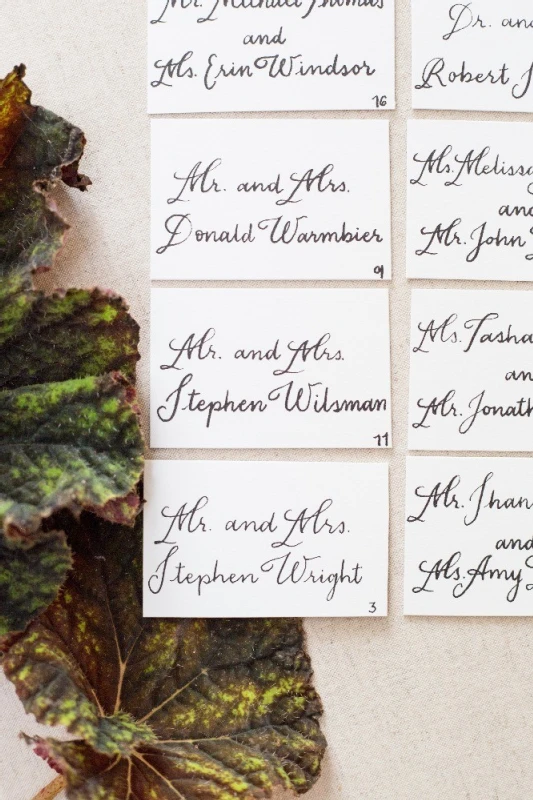 Mr. Michael Thomas
and
Ms. Erin Windsor
16
Mr. and Mrs.
Donald Warmbier
9
Mr. and Mrs.
Stephen Wilsman
11
Mr. and Mrs.
Stephen Wright
3
Dr. and
Robert
Ms. Melissa
and
Mr. John
Ms. Tasha
an
Mr. Jonath
Mr. Shan
and
Ms. Amy